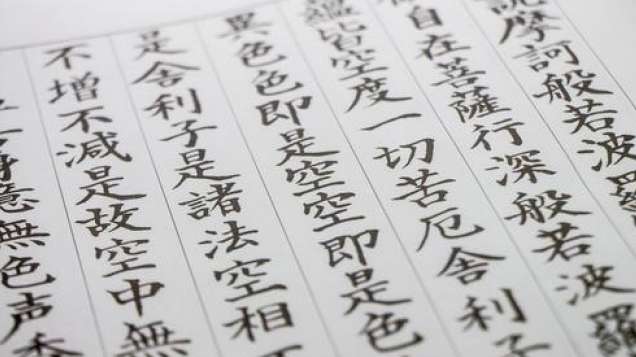 説摩訶般若波羅
自在菩薩行深般若波羅
蘊皆空度一切苦厄舎利子
異色色即是空空即是色
是舎利子是諸法空相
不増不減是故空中無
身意無色声香